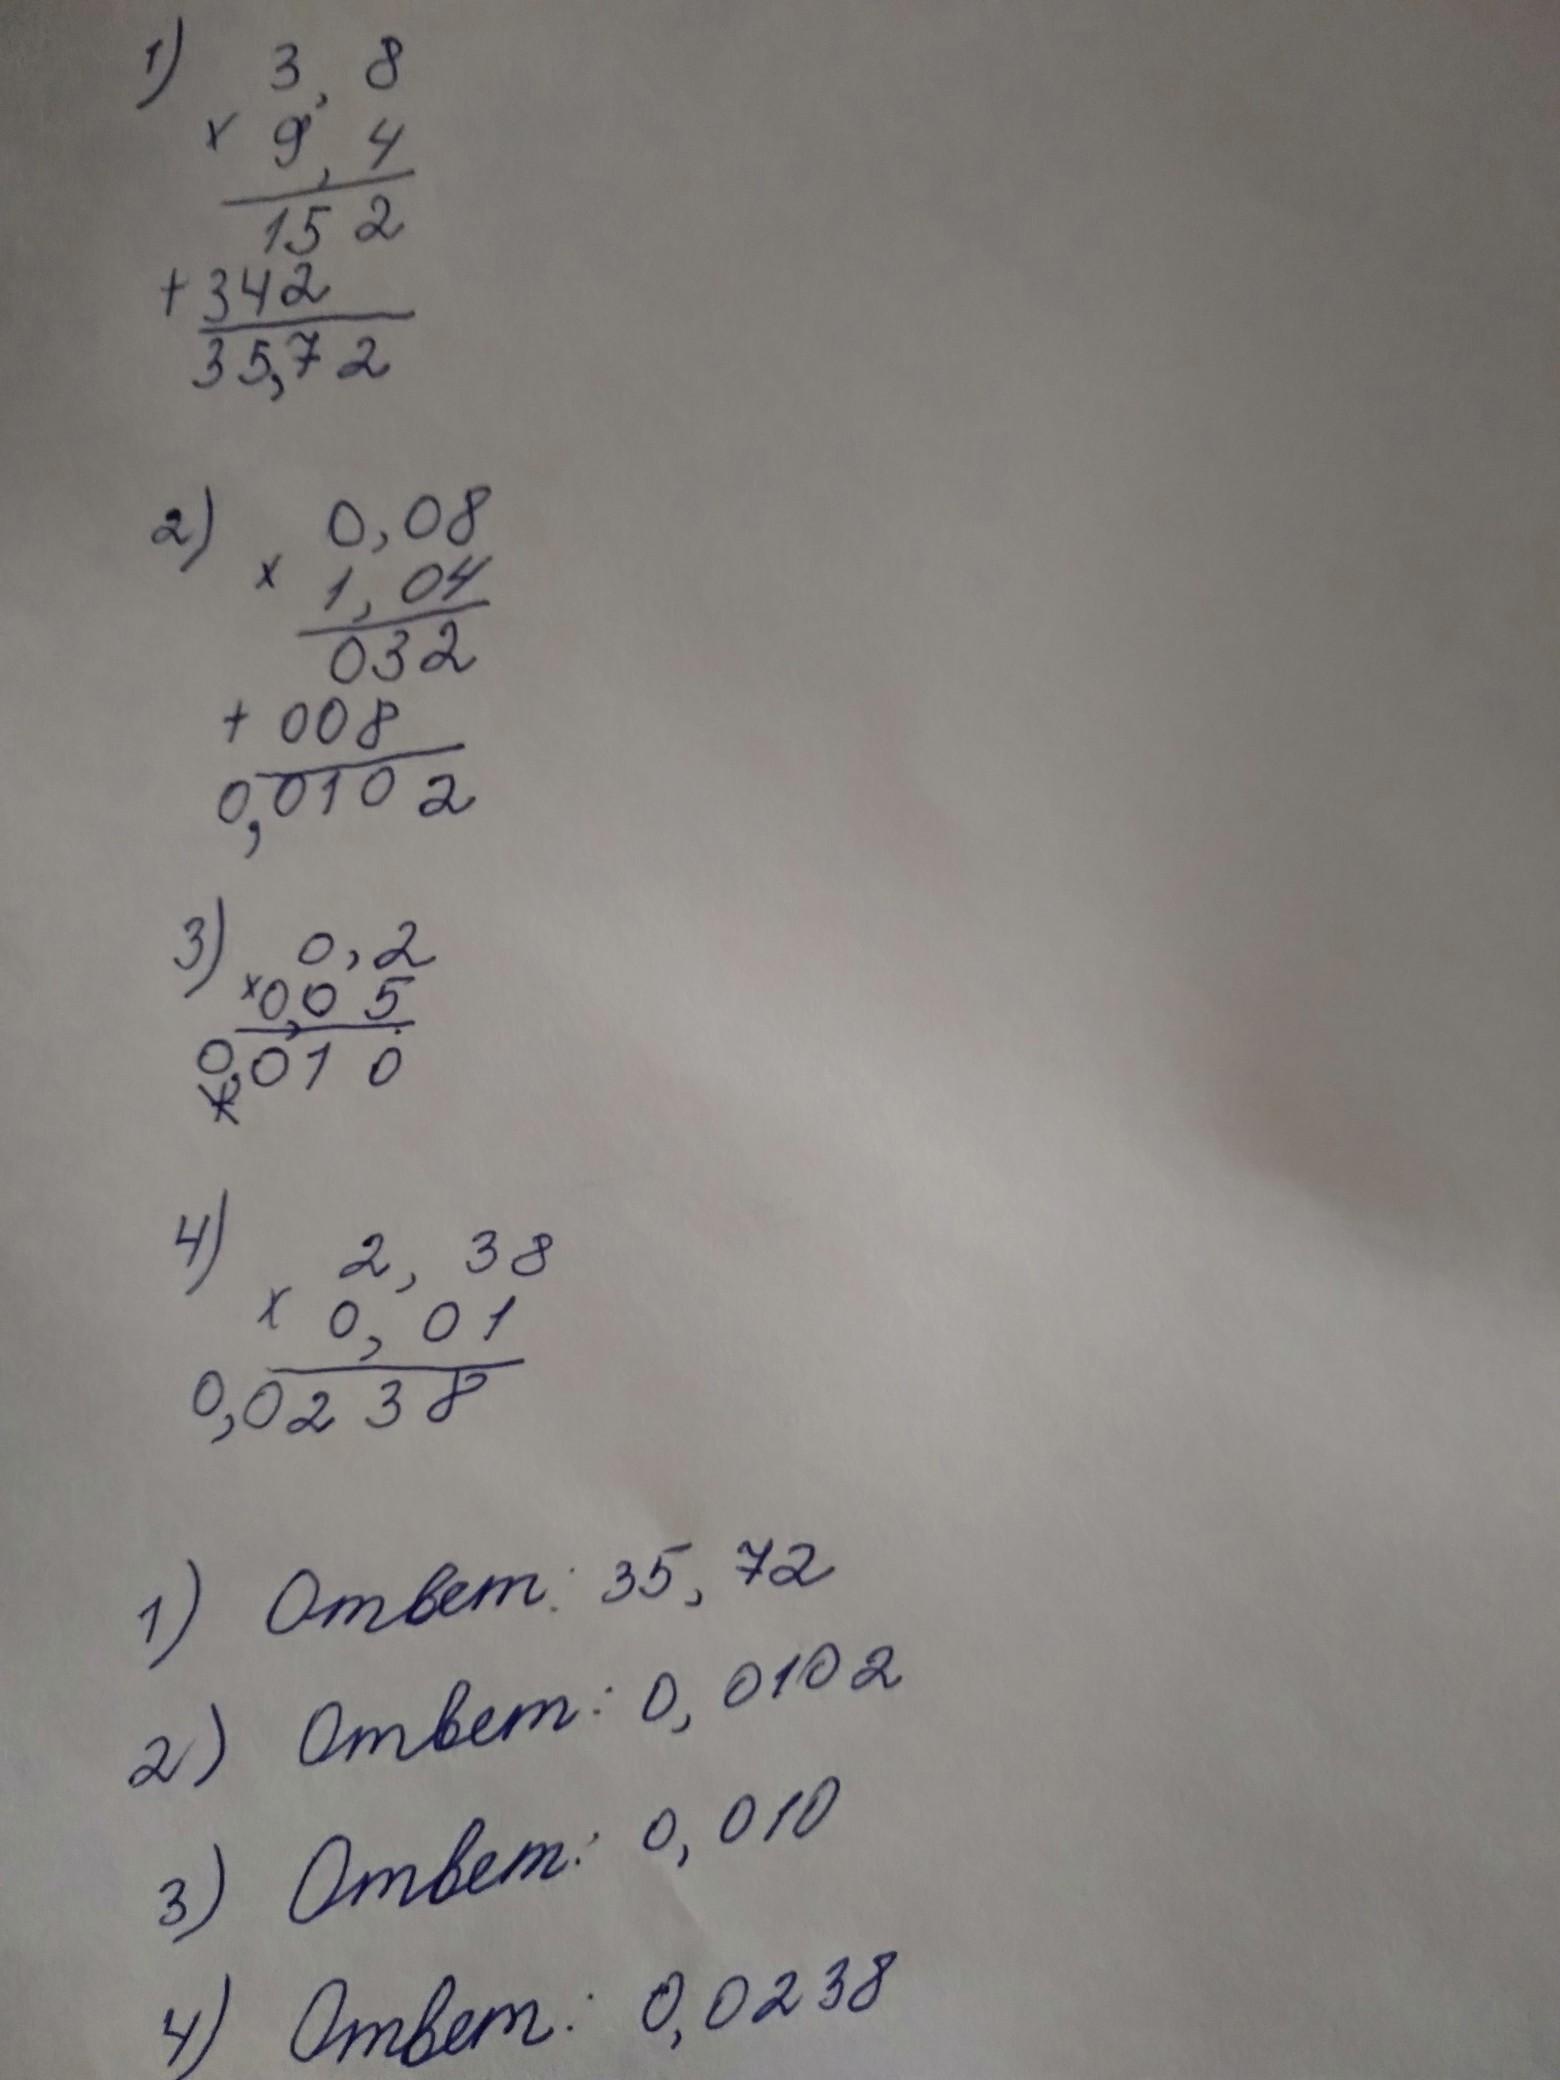 1) 3,8
× 9,4
152
+342
35,72
2) 0,08
× 1,04
032
+ 008
0,0102
3) 0,2
×0,05
0,010
4) 2,38
× 0,01
0,0238
1) Ответ: 35,72
2) Ответ: 0,0102
3) Ответ: 0,010
4) Ответ: 0,0238